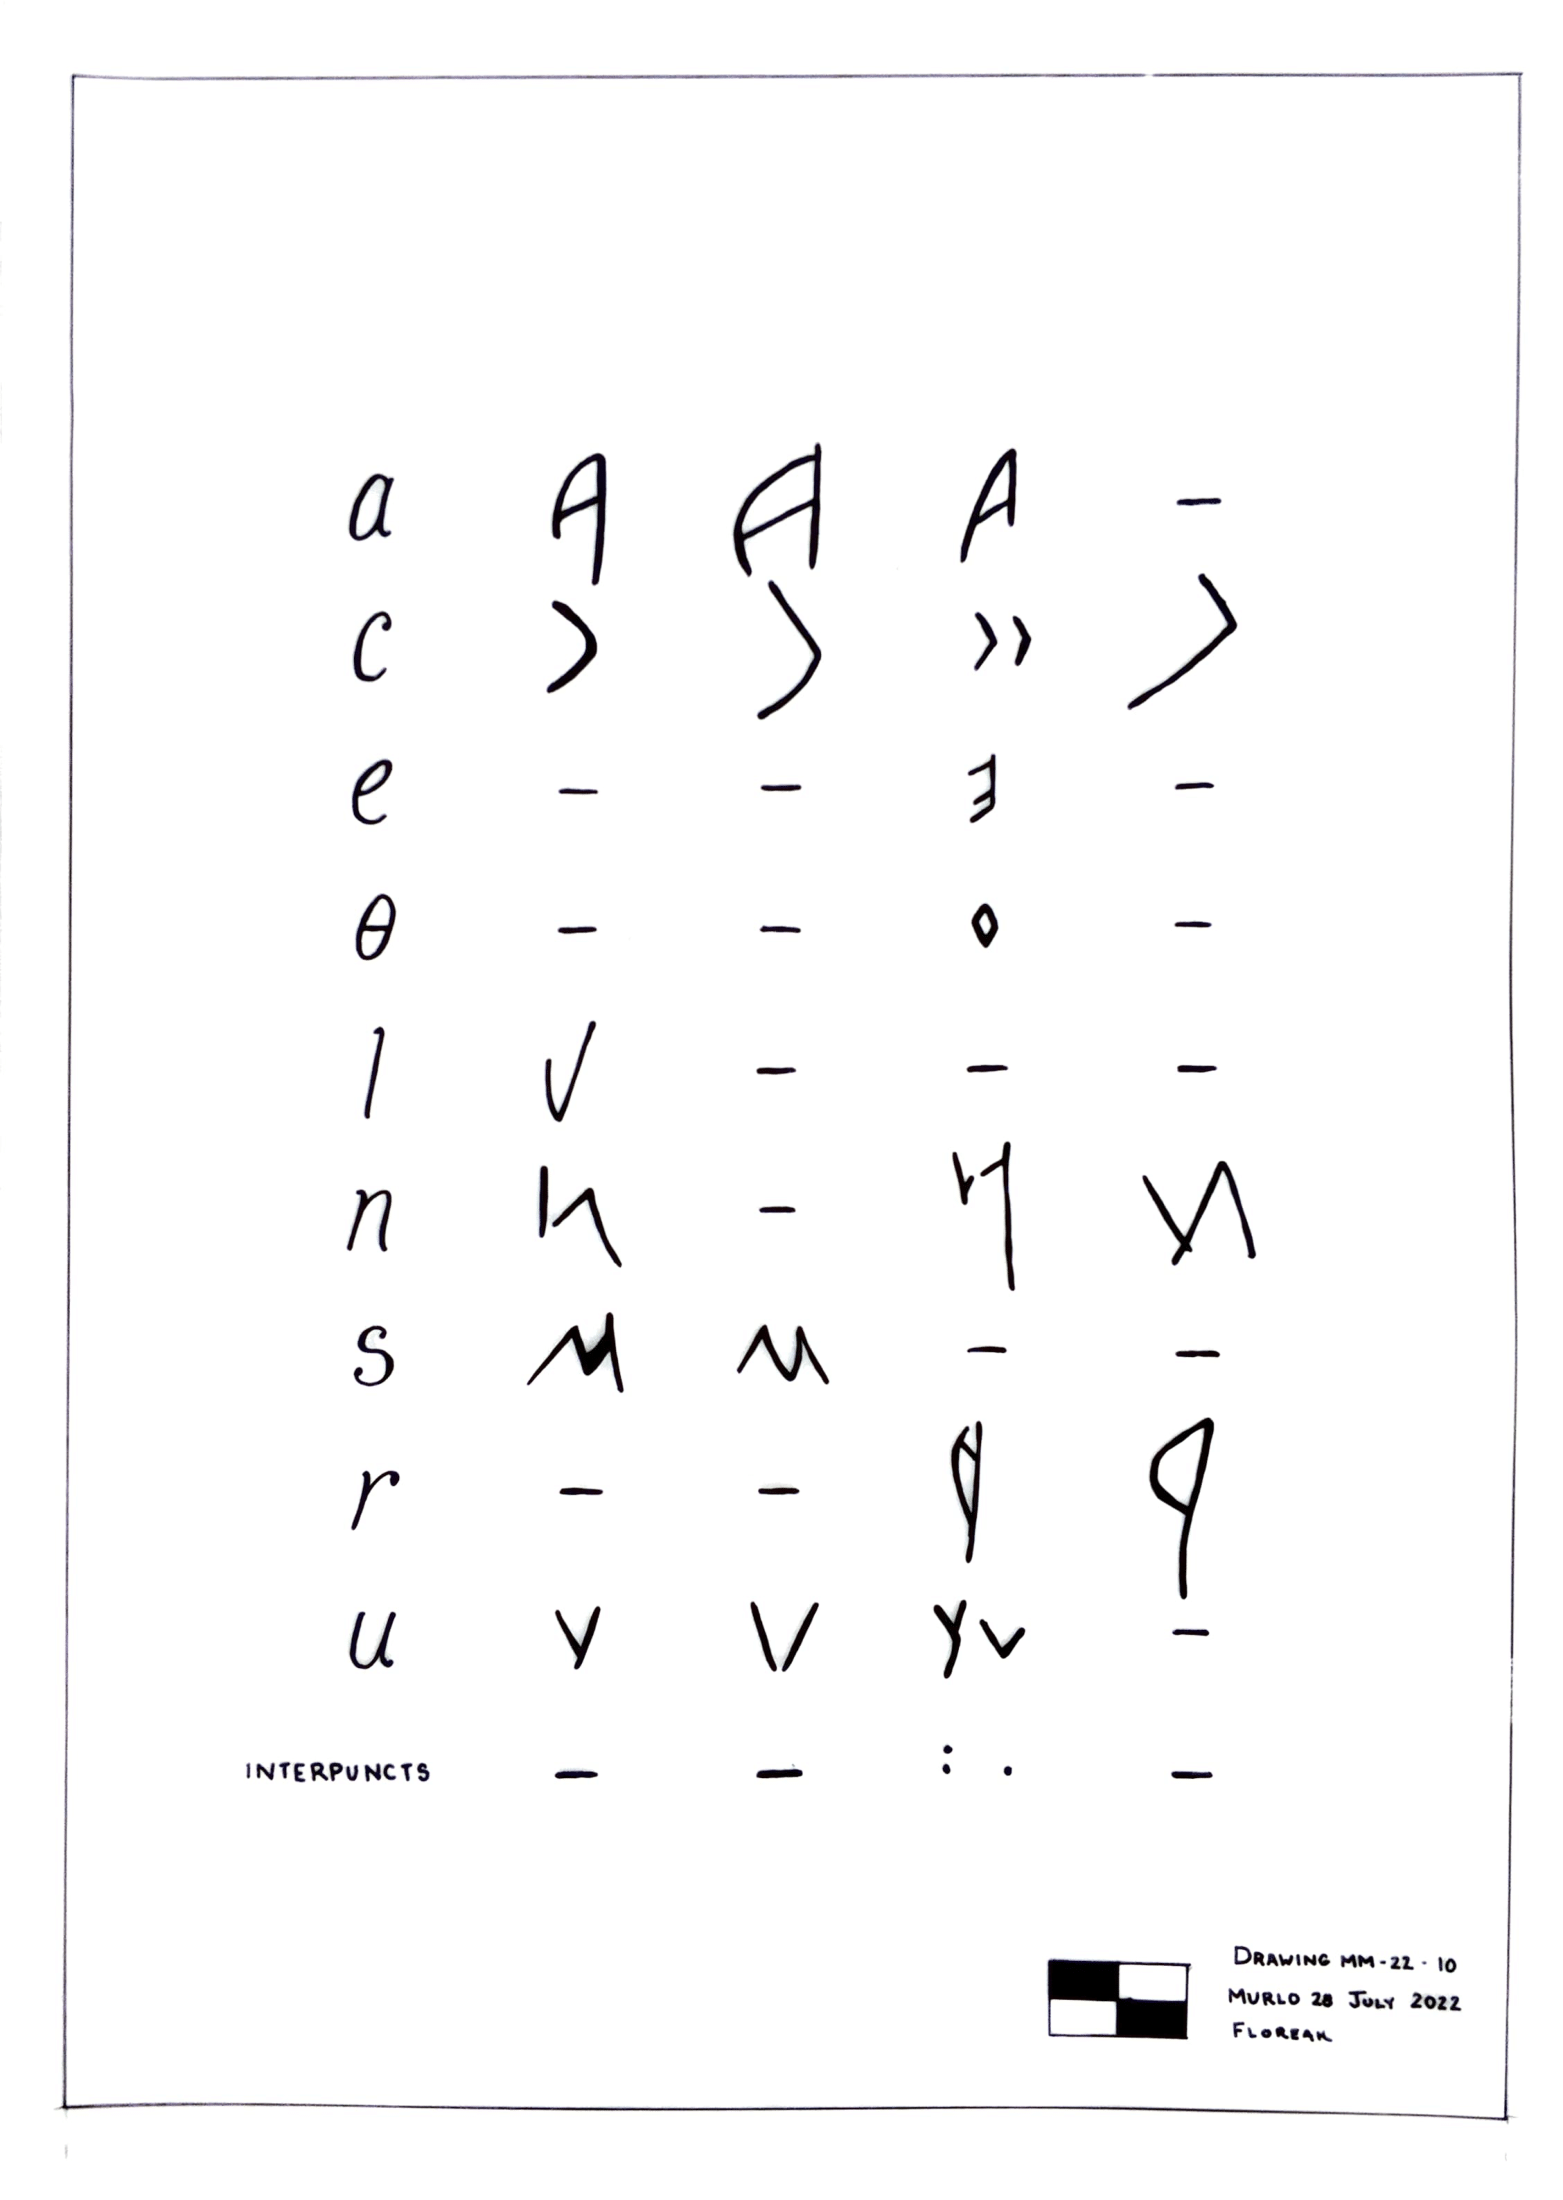 a A A A -
c > > >> >
e - - 𐌄 -
θ - - ◊ -
l 𐌋 - - -
n 𐌍 - 𐌍 𐌍
s M M - -
r - - 𐌓 𐌓
u V V YV -
INTERPUNCTS - - : · -
DRAWING MM-22-10
MURLO 28 JULY 2022
FLOREAK